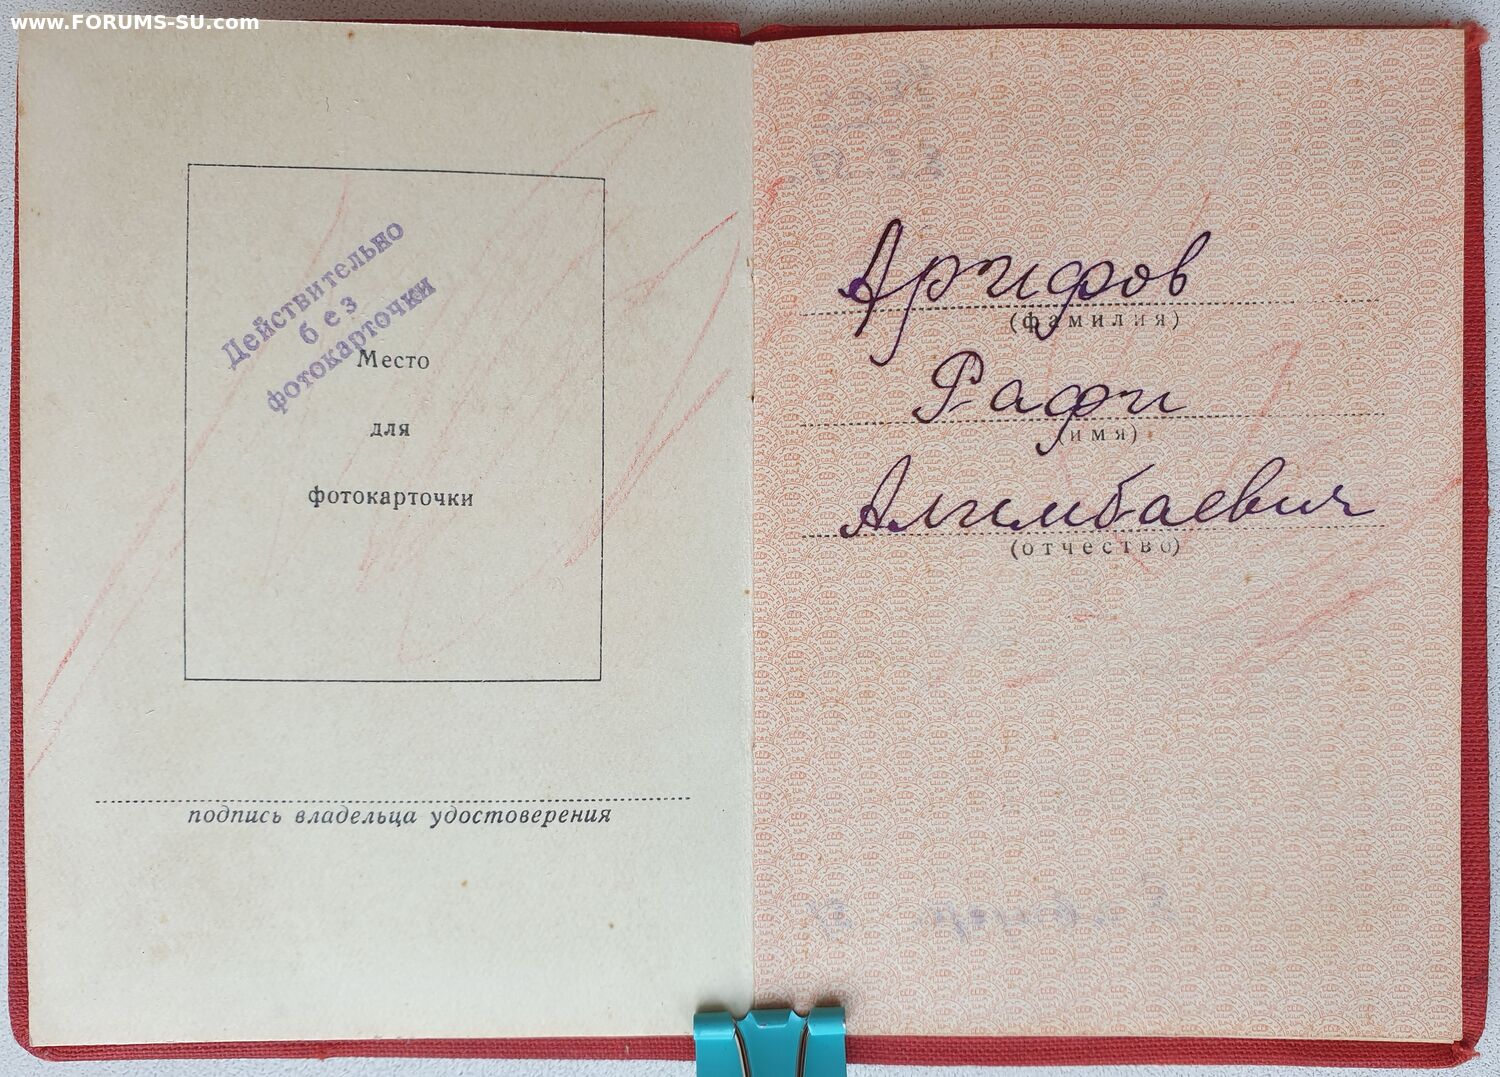 www.FORUMS-SU.com
Действительно
без
фотокарточки
Место
для
фотокарточки
подпись владельца удостоверения
Арифов
(фамилия)
Рафи
(имя)
Алимбаевич
(отчество)